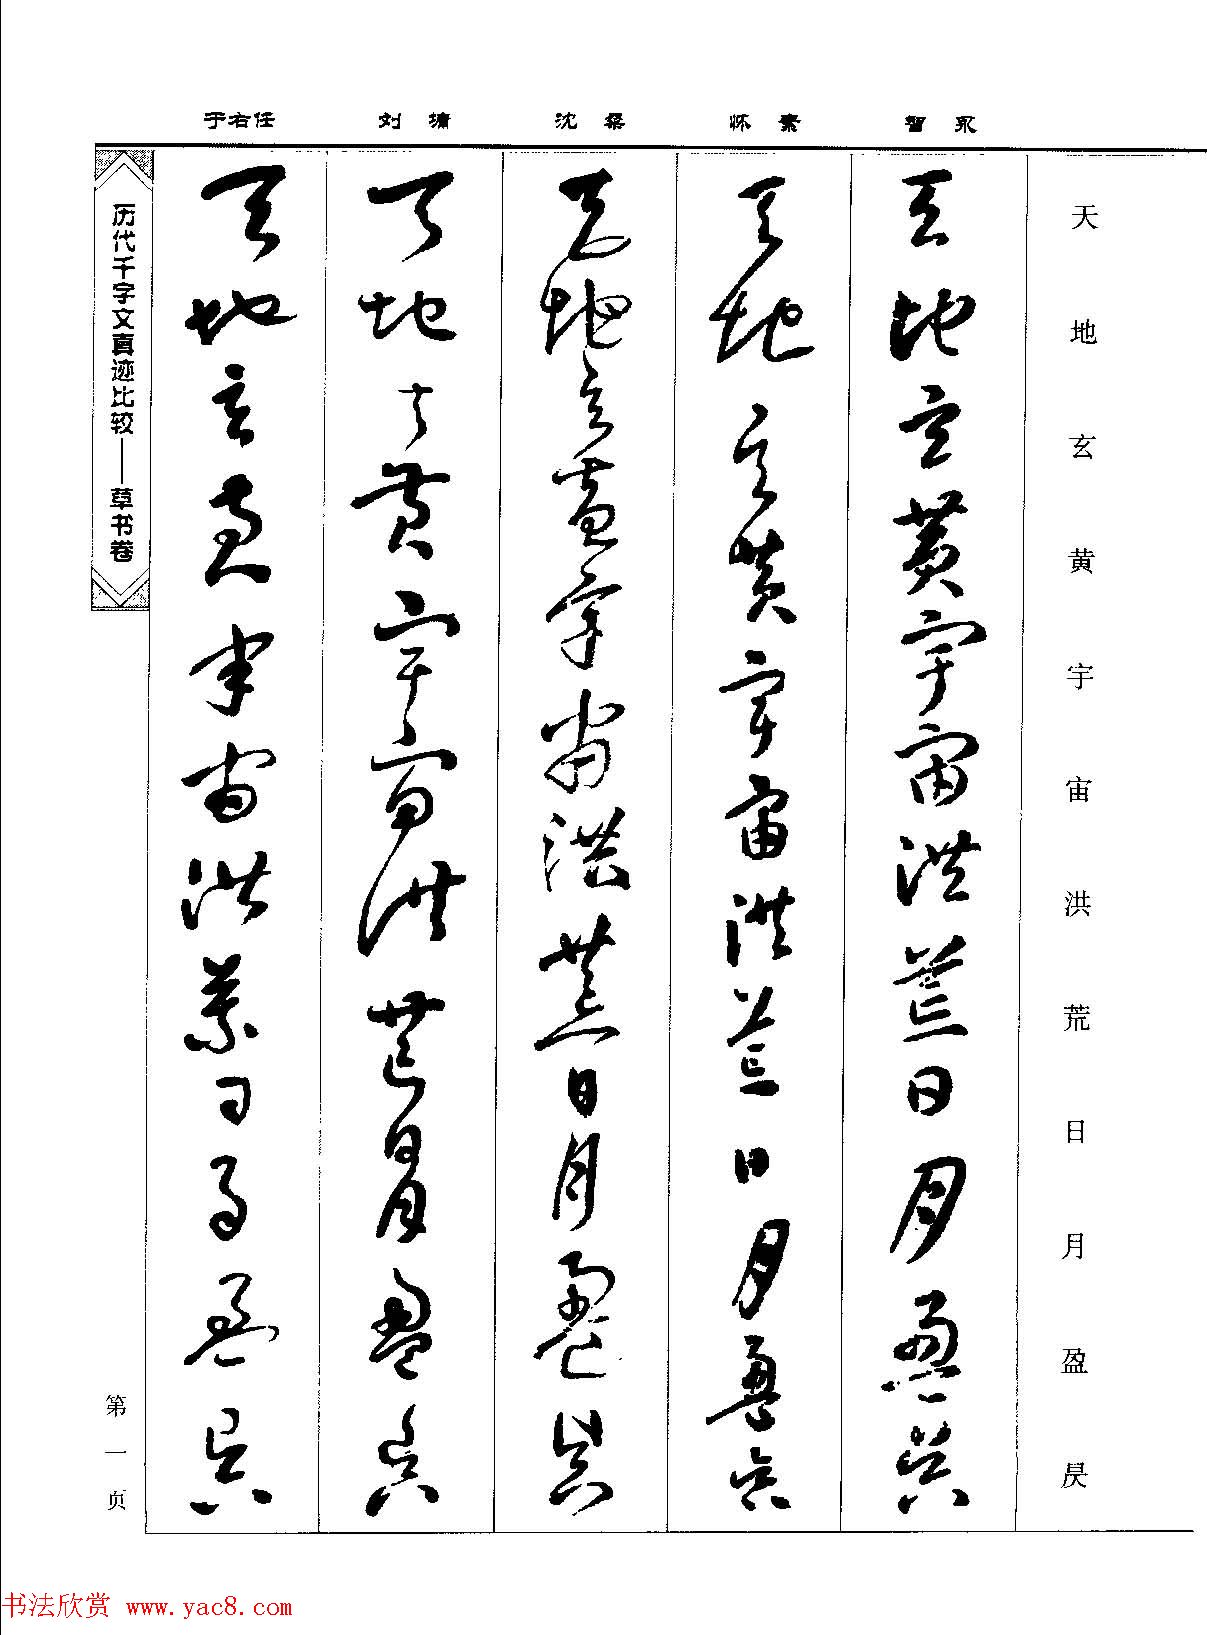 于右任 刘墉 沈粲 怀素 智永
天地玄黄宇宙洪荒日月盈昃
天地玄黄宇宙洪荒日月盈昃
天地玄黄宇宙洪荒日月盈昃
天地玄黄宇宙洪荒日月盈昃
天地玄黄宇宙洪荒日月盈昃
天地玄黄宇宙洪荒日月盈昃
历代千字文真迹比较——草书卷
第一页
书法欣赏 www.yac8.com